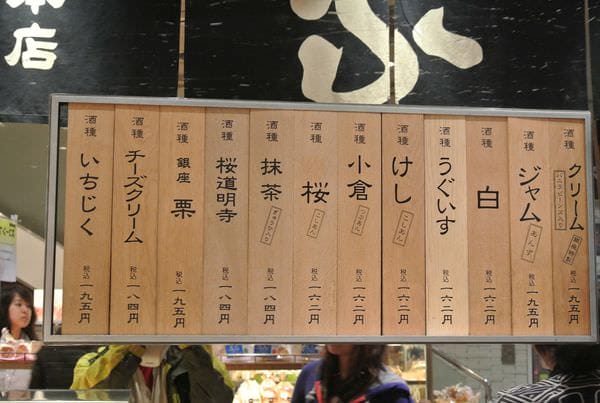 本店
酒種 クリーム 税込 一九五円
酒種 ジャム あんず 税込 一九五円
酒種 白 税込 一六二円
酒種 うぐいす 税込 一六二円
酒種 けし こしあん 税込 一六二円
酒種 小倉 つぶあん 税込 一六二円
酒種 桜 こしあん 税込 一六二円
酒種 抹茶 ぎゅうひ入り 税込 一六二円
酒種 桜道明寺 税込 一八四円
酒種 銀座 栗 税込 一九五円
酒種 チーズクリーム 税込 一八四円
酒種 いちじく 税込 一九五円